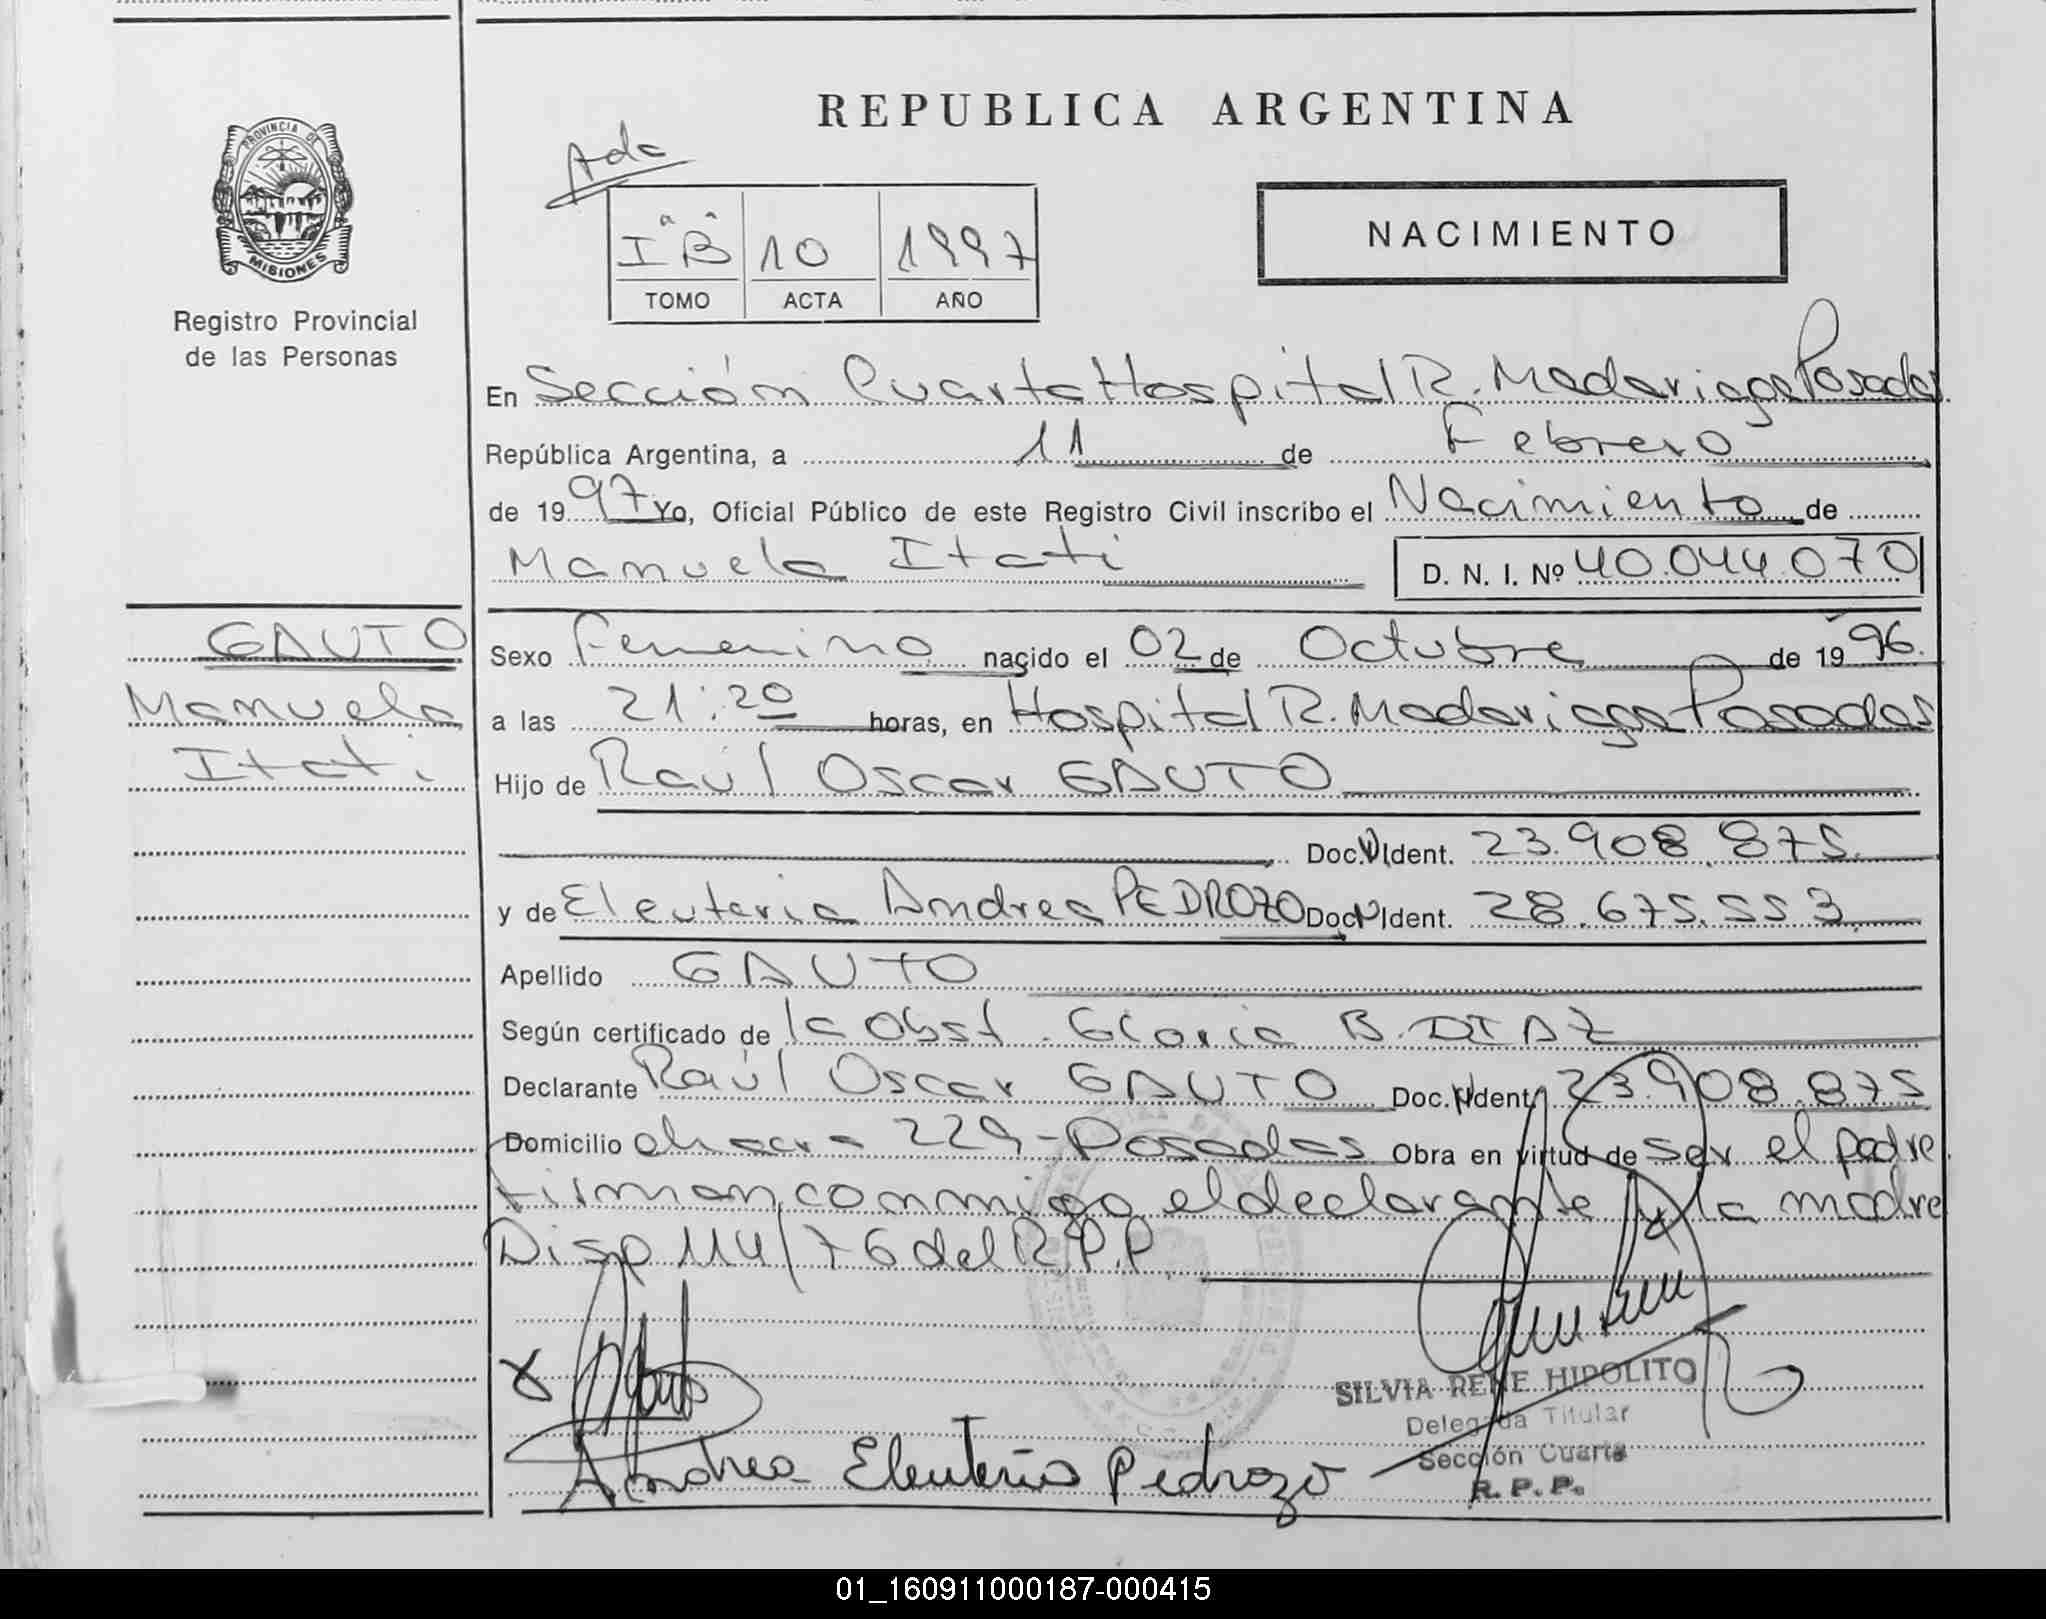 REPUBLICA ARGENTINA
Ada
I "B" 10 1997
TOMO ACTA AÑO
NACIMIENTO
PROVINCIA DE
MISIONES
Registro Provincial
de las Personas
En Sección Cuarta Hospital R. Madariaga Posadas
República Argentina, a 11 de Febrero
de 1997 Yo, Oficial Público de este Registro Civil inscribo el Nacimiento de
Manuela Itati D. N. I. Nº 40.044.070
GAUTO
Manuela
Itati.
Sexo Femenino nacido el 02 de Octubre de 1996.
a las 21:20 horas, en Hospital R. Madariaga Posadas
Hijo de Raúl Oscar GAUTO
Doc. Ident. 23.908.875.
y de Eleuteria Andrea PEDROZO Doc. Ident. 28.675.553
Apellido GAUTO
Según certificado de la Obst. Gloria B. DIAZ
Declarante Raúl Oscar GAUTO Doc. Ident. 23.908.875
Domicilio chacra 229-Posadas Obra en virtud de ser el padre
firman conmigo el declarante y la madre
Disp 114/76 del R.P.P.
SILVIA RENE HIPOLITO
Delegada Titular
Sección Cuarta
R. P. P.
Andrea Eleuteria Pedrozo
01_160911000187-000415